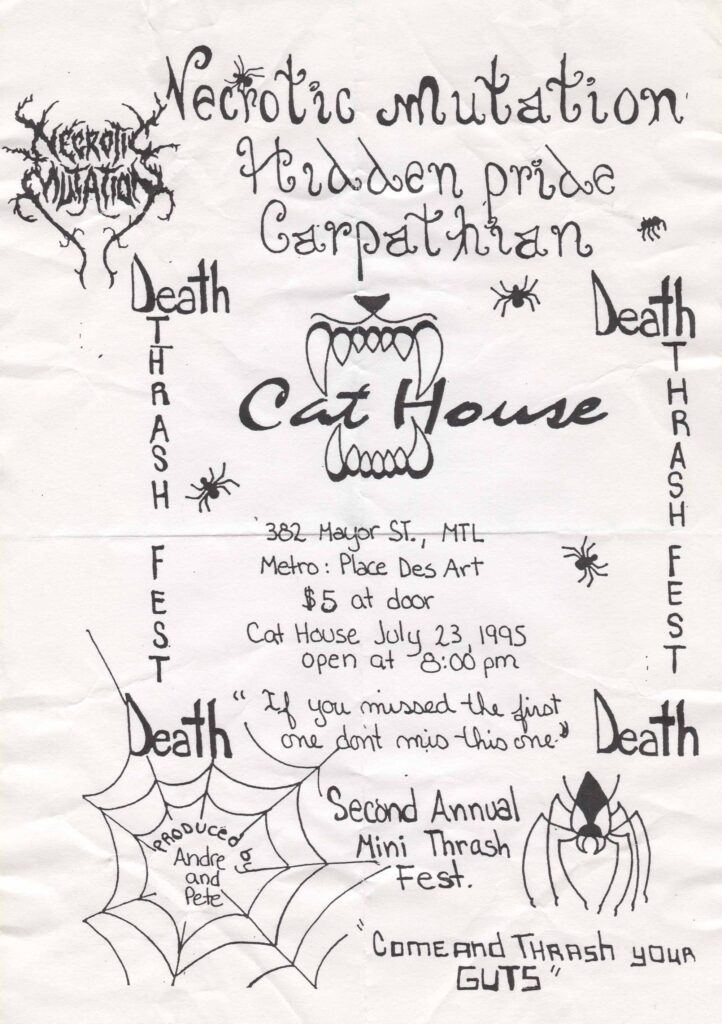 Necrotic mutation
NECROTIC
MUTATION
Hidden pride
Carpathian
Death
THRASH
FEST
Death
Death
THRASH
FEST
Death
Cat House
382 Mayor ST., MTL
Metro: Place Des Art
$5 at door
Cat House July 23, 1995
open at 8:00 pm
"If you missed the first
one don't mis this one."
Second Annual
Mini Thrash
Fest.
PRODUCED by
Andre
and
Pete
"COME AND THRASH YOUR
GUTS"